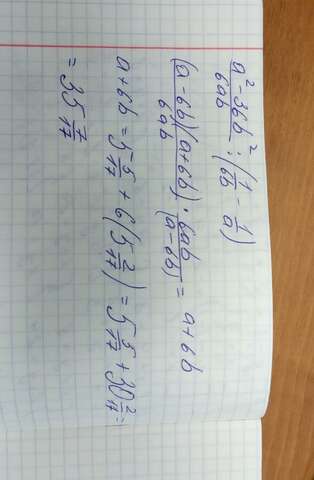 a²-36b²/6ab : (1/6b - 1/a)
(a-6b)(a+6b)/6ab · 6ab/(a-6b) = a+6b
a+6b = 5 5/17 + 6(5 2/17) = 5 5/17 + 30 2/17 =
= 35 7/17